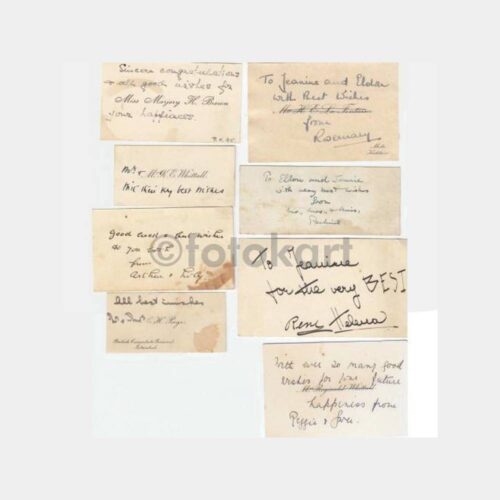 Sincere congratulations
& all good wishes for
Miss Marjory H. Brown
your happiness.
To Jeanine and Eldon
with Best Wishes
from
Rosemary
Mr. & Mrs. K. E. Whittall
With their very best wishes
To Eldon and Jeanine
with very best wishes
from
Mr., Mrs. & Miss.
Good luck & best wishes
to you both
from
Arthur & Lily
©fotokart
To Jeanine
for the very BEST
René Helena
All best wishes
Mr & Mrs C. H. Page
British Consulate General
Istanbul
With ever so many good
wishes for your future
Mr Reginald Whittall
happiness from
Peggie &